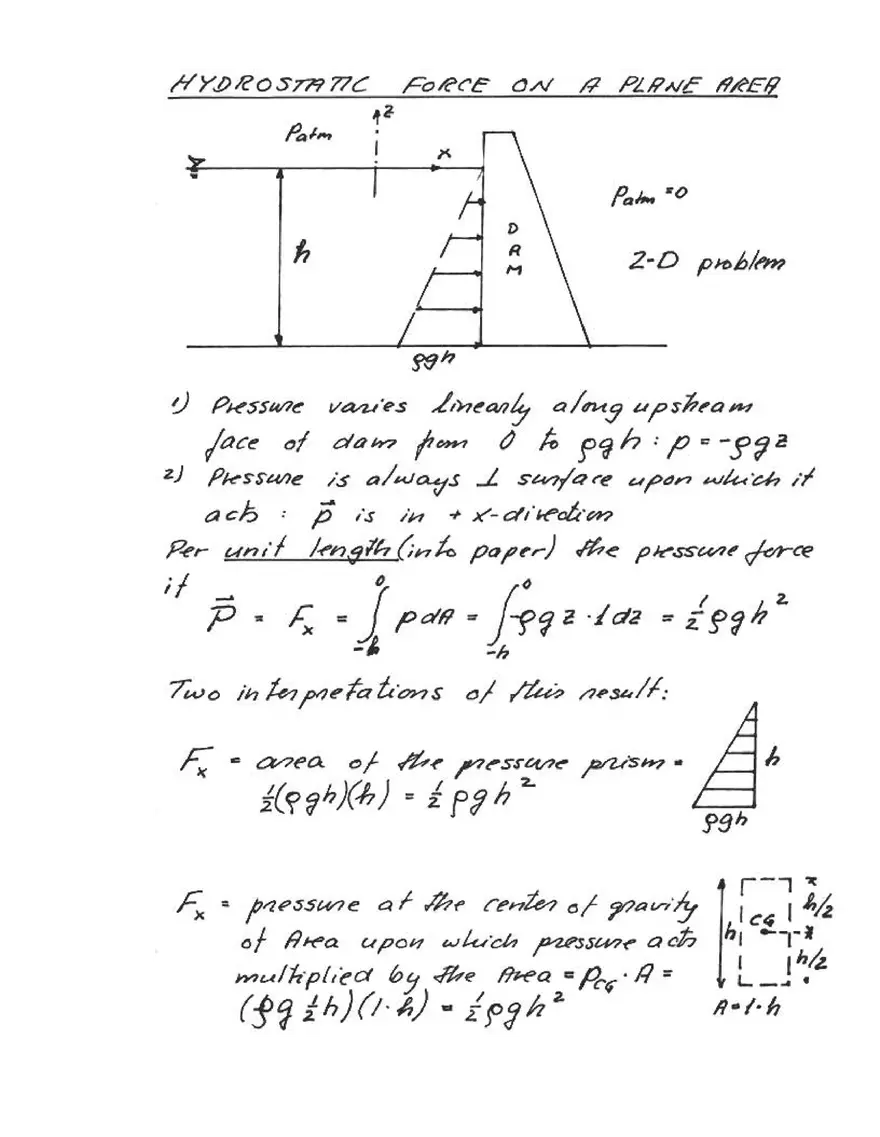 HYDROSTATIC FORCE ON A PLANE AREA
Patm
z
x
Patm = 0
h
D
A
M
2-D problem
ρgh
1) Pressure varies linearly along upstream
face of dam from 0 to ρgh : p = -ρgz
2) Pressure is always ⊥ surface upon which it
acts : p⃗ is in + x-direction
Per unit length (into paper) the pressure force
if
P⃗ = Fx = ∫_{-h}^{0} p dA = ∫_{-h}^{0} -ρgz · 1dz = ½ρgh²
Two interpretations of this result:
Fx = area of the pressure prism =
½(ρgh)(h) = ½ρgh²
h
ρgh
Fx = pressure at the center of gravity
of Area upon which pressure acts
multiplied by the Area = pCG · A =
(ρg ½h)(1·h) = ½ρgh²
h
CG
h/2
h/2
A = 1·h